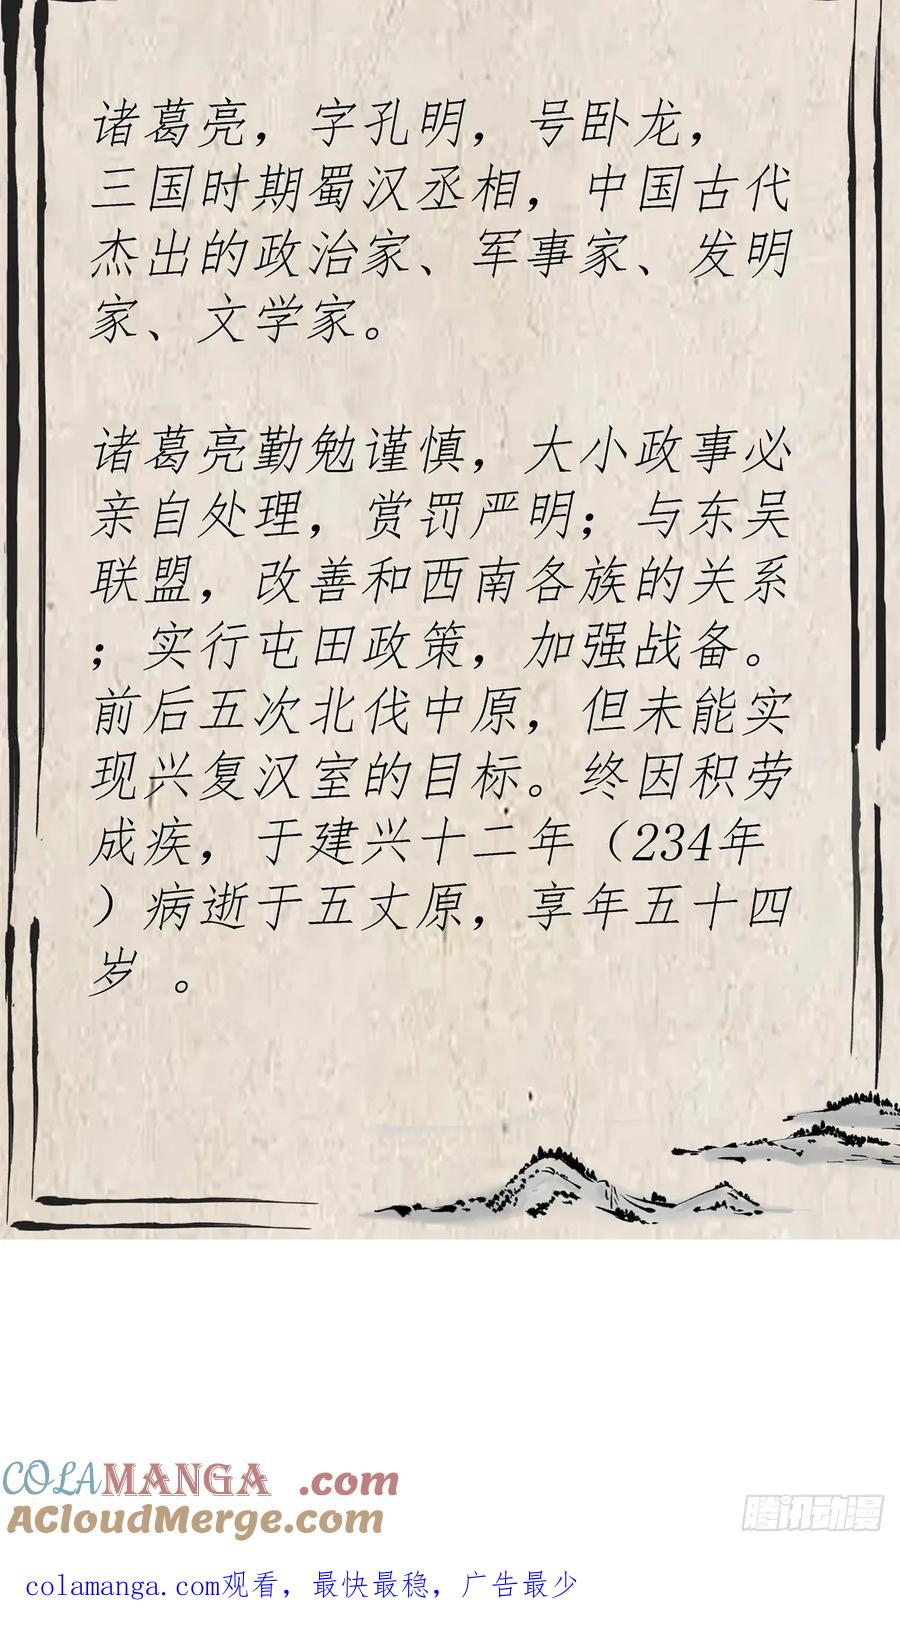 诸葛亮，字孔明，号卧龙，
三国时期蜀汉丞相，中国古代
杰出的政治家、军事家、发明
家、文学家。
诸葛亮勤勉谨慎，大小政事必
亲自处理，赏罚严明；与东吴
联盟，改善和西南各族的关系
；实行屯田政策，加强战备。
前后五次北伐中原，但未能实
现兴复汉室的目标。终因积劳
成疾，于建兴十二年（234年
）病逝于五丈原，享年五十四
岁 。
COLAMANGA.com
ACloudMerge.com
腾讯动漫
colamanga.com观看，最快最稳，广告最少